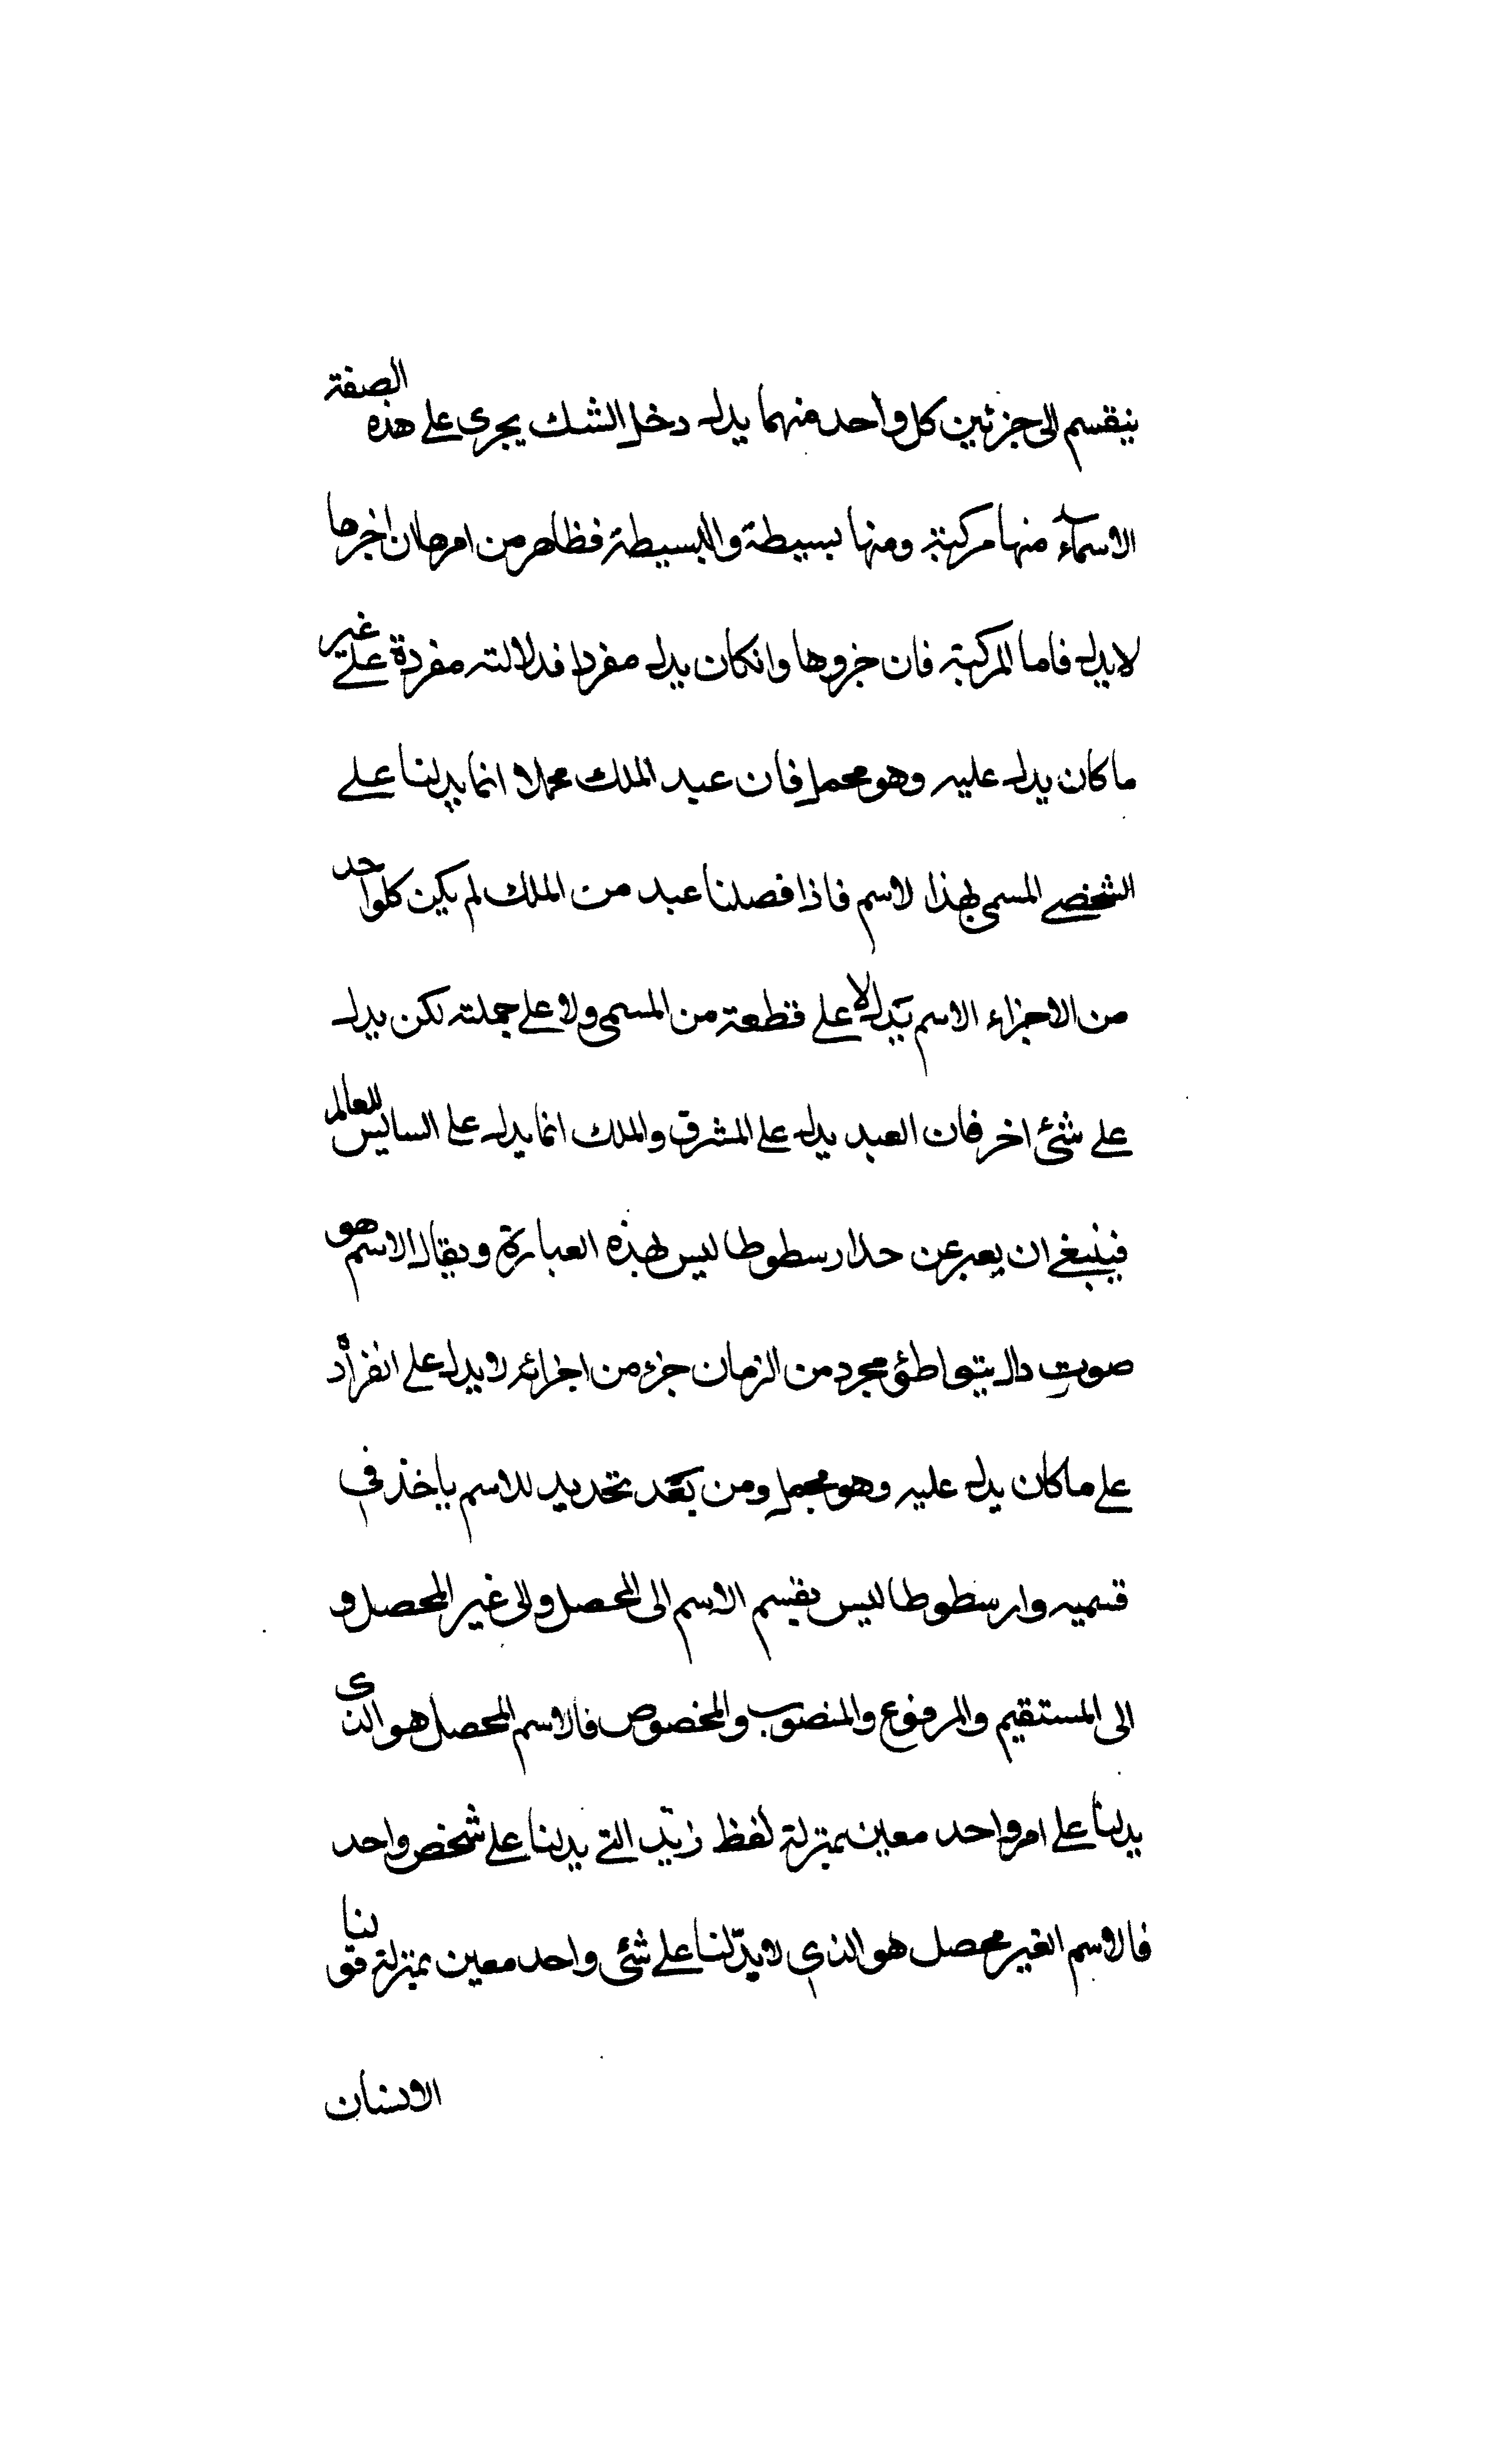 ينقسم الى جزئين كل واحد منهما يدل دخل الشك يجرى على هذه الصفة
الاسماء منها مركبة ومنها بسيطة والبسيطة فظاهر من امرها ان اجزها
لا يدل فاما المركبة فان جزوها وانكان يدل مفردا فدلالته مفردة على غير
ما كان يدل عليه وهو محمل فان عبد الملك محملا انما يدلنا على
الشخصے المسمى بهذا لاسم فاذا فصلنا عبد من الملك لم يكن كلواحد
من الاجزاء الاسم يدل لا على قطعة من المسمى ولا على جملته لكن يدل
على شئ اخر فان العبد يدل على المشرق والملك انما يدل على السايس للعالم
فينبغي ان يعبر عن حدا رسطوطاليس بهذه العبارة ويقال الاسم هو
صوت دال بتواطئ مجرد من الزمان جزء من اجزائه لا يدل على انفراده
على ما كان يدل عليه وهو مجمل ومن بعد تحديد للاسم ياخذ في
قسميه وارسطوطاليس يقسم الاسم الى المحصل والى غير المحصل و
الى المستقيم والمرفوع والمنصوب والمخصوص فالاسم المحصل هو الذى
يدلنا على امر واحد معين بمنزلة لفظ زيد التے يدلنا على شخص واحد
فالاسم الغير محصل هو الذي لا يدّلنا على شئ واحد معين بمنزلة قولنا
الانسان